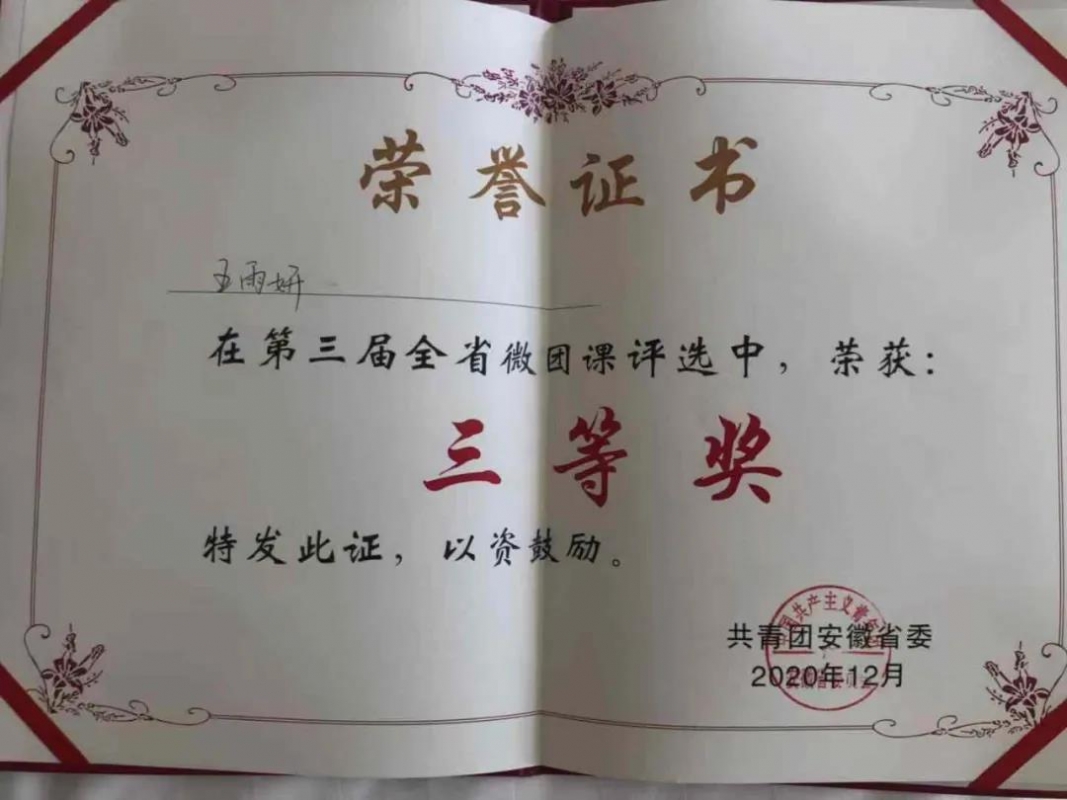 荣誉证书
王雨妍
在第三届全省微团课评选中，荣获：
三等奖
特发此证，以资鼓励。
共青团安徽省委
2020年12月